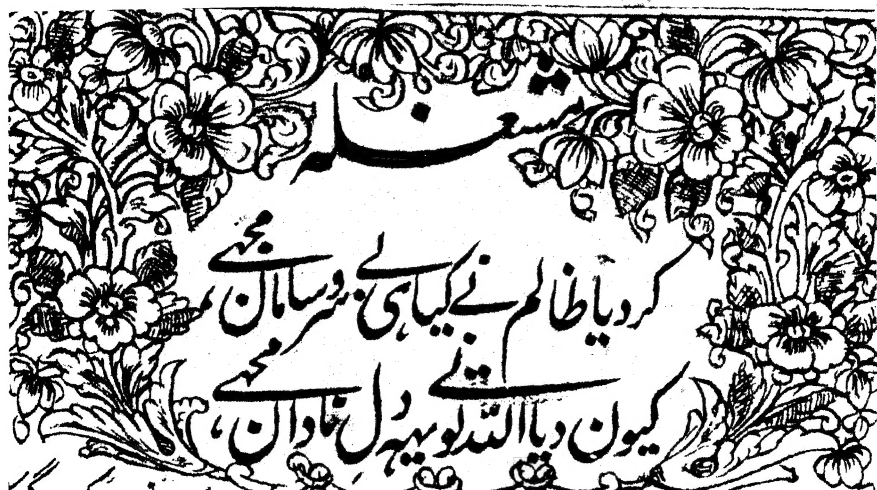 مشغلہ
کر دیا ظالم نے کیا ہی بے سر و سامان مجھے
کیون دیا اللہ تو نے یہہ دل نادان مجھے